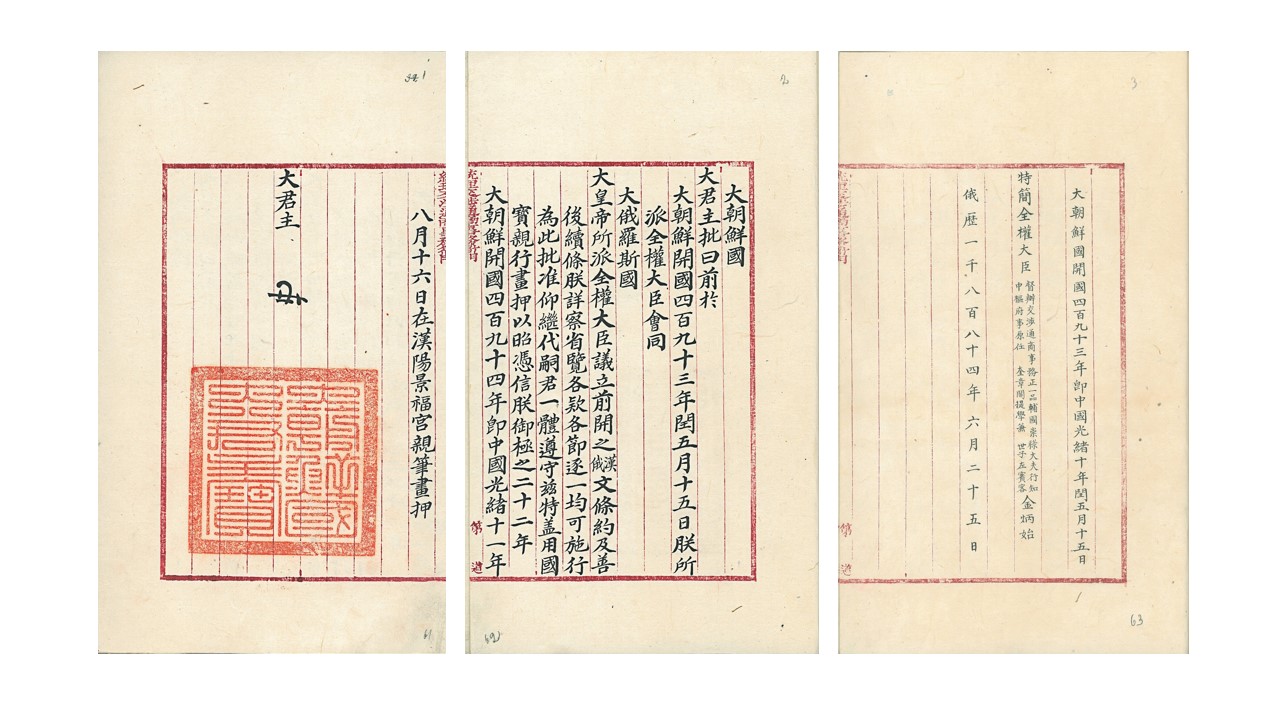 大朝鮮國開國四百九十三年卽中國光緒十年閏五月十五日
特簡全權大臣 督辦交涉通商事務正一品輔國崇祿大夫行知中樞府事原任 奎章閣提學兼 世子左賓客 金炳始
俄歷一千八百八十四年六月二十五日
第 道
3
63
大朝鮮國
大君主批曰前於
大朝鮮開國四百九十三年閏五月十五日朕所
派全權大臣會同
大俄羅斯國
大皇帝所派全權大臣議立前開之漢俄文條約及善
後續條朕詳察省覽各款各節逐一均可施行
為此批准仰繼代嗣君一體遵守茲特蓋用國
寶親行畫押以昭憑信朕御極之二十二年
大朝鮮開國四百九十四年卽中國光緒十一年
第 道
2
八月十六日在漢陽景福宮親筆畫押
大君主